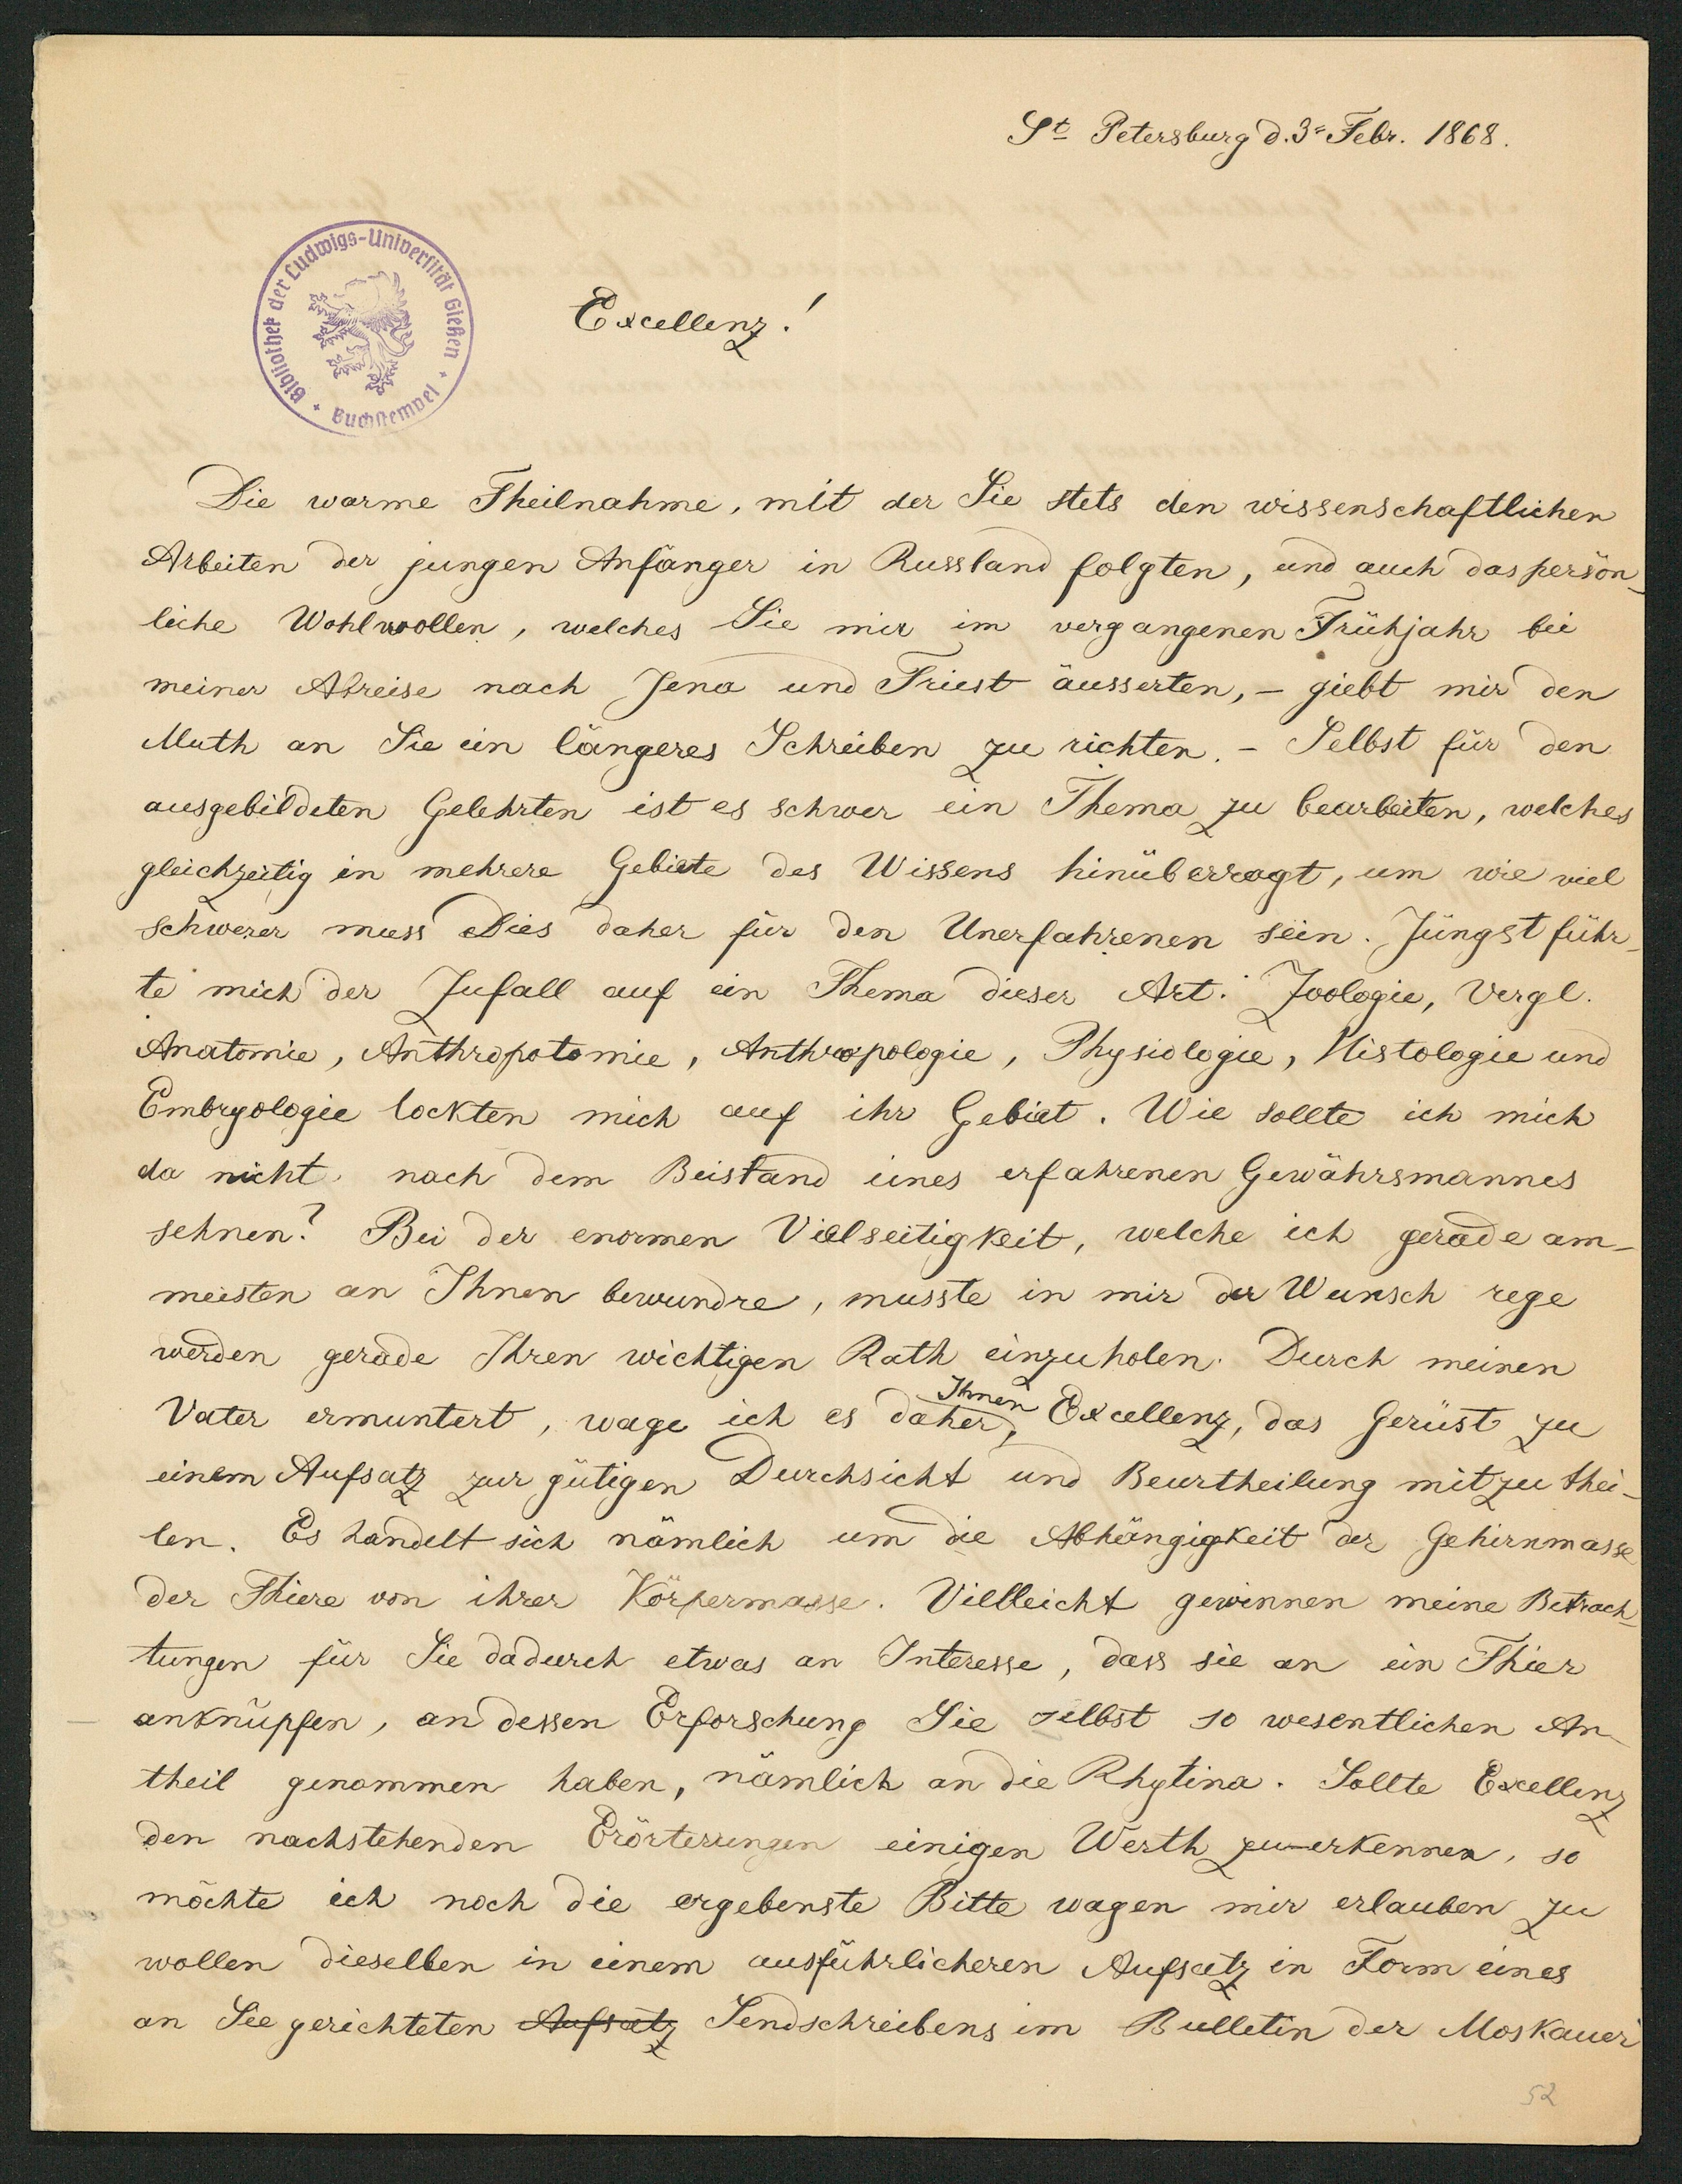 St Petersburg d. 3r Febr. 1868.
Bibliothek der Ludwigs-Universität Gießen
Buchstempel
Excellenz!
Die warme Theilnahme, mit der Sie stets den wissenschaftlichen
Arbeiten der jungen Anfänger in Russland folgten, und auch das persön-
liche Wohlwollen, welches Sie mir im vergangenen Frühjahr bei
meiner Abreise nach Jena und Triest äusserten, – giebt mir den
Muth an Sie ein längeres Schreiben zu richten. – Selbst für den
ausgebildeten Gelehrten ist es schwer ein Thema zu bearbeiten, welches
gleichzeitig in mehrere Gebiete des Wissens hinüberragt, um wie viel
schwerer muss Dies daher für den Unerfahrenen sein. Jüngst führ-
te mich der Zufall auf ein Thema dieser Art. Zoologie, Vergl.
Anatomie, Anthropotomie, Anthropologie, Physiologie, Histologie und
Embryologie lockten mich auf ihr Gebiet. Wie sollte ich mich
da nicht nach dem Beistand eines erfahrenen Gewährsmannes
sehnen? Bei der enormen Vielseitigkeit, welche ich gerade am-
meisten an Ihnen bewundre, musste in mir der Wunsch rege
werden gerade Ihren wichtigen Rath einzuholen. Durch meinen
Vater ermuntert, wage ich es daher, Ihnen Excellenz, das Gerüst zu
einem Aufsatz zur gütigen Durchsicht und Beurtheilung mitzuthei-
len. Es handelt sich nämlich um die Abhängigkeit der Gehirnmasse
der Thiere von ihrer Körpermasse. Vielleicht gewinnen meine Betrach-
tungen für Sie dadurch etwas an Interesse, dass sie an ein Thier
anknüpfen, an dessen Erforschung Sie selbst so wesentlichen An-
theil genommen haben, nämlich an die Rhytina. Sollte Excellenz
den nachstehenden Erörterungen einigen Werth zu-erkennen, so
möchte ich noch die ergebenste Bitte wagen mir erlauben zu
wollen dieselben in einem ausführlicheren Aufsatz in Form eines
an Sie gerichteten Aufsatz Sendschreibens im Bulletin der Moskauer
52